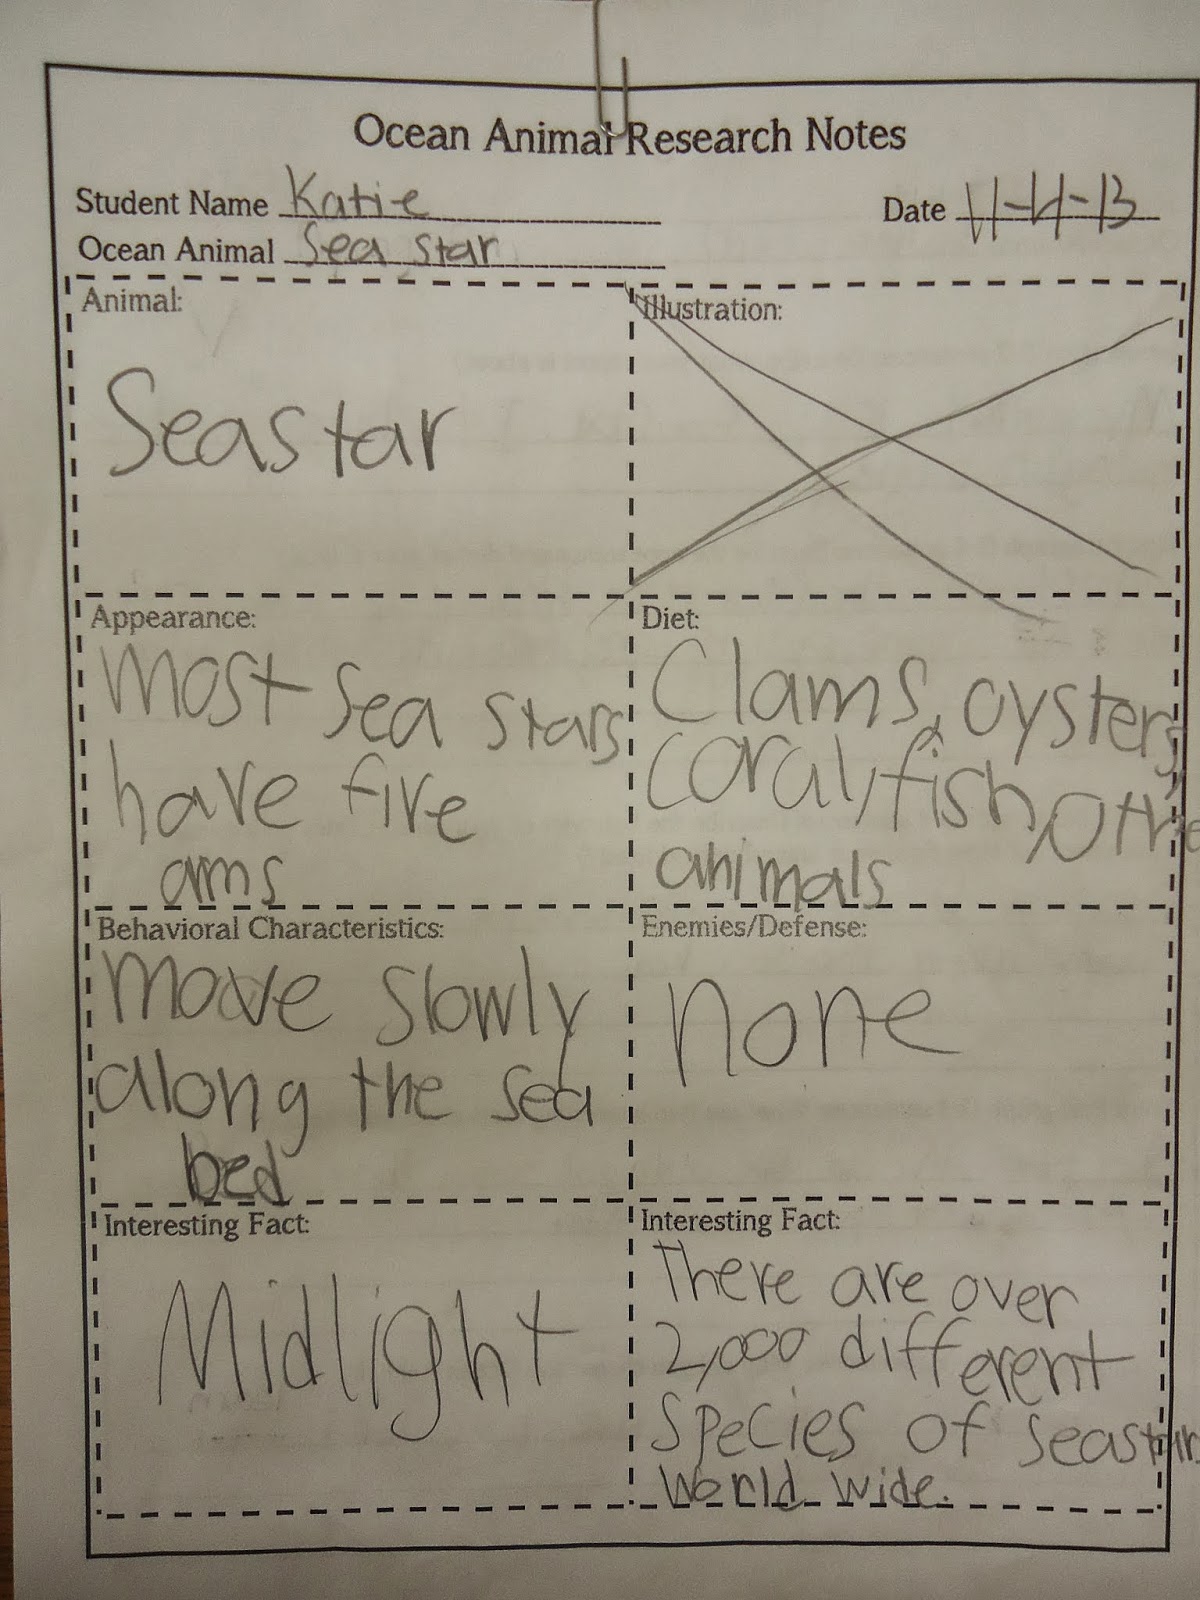 Ocean Animal Research Notes
Student Name Katie
Date 11-4-13
Ocean Animal Sea star
Animal:
Seastar
Illustration:
Appearance:
Most sea stars
have five
arms
Diet:
Clams, oysters,
coral, fish, othe
animals
Behavioral Characteristics:
Move slowly
along the sea
bed
Enemies/Defense:
none
Interesting Fact:
Midlight
Interesting Fact:
There are over
2,000 different
species of seastars
world wide.